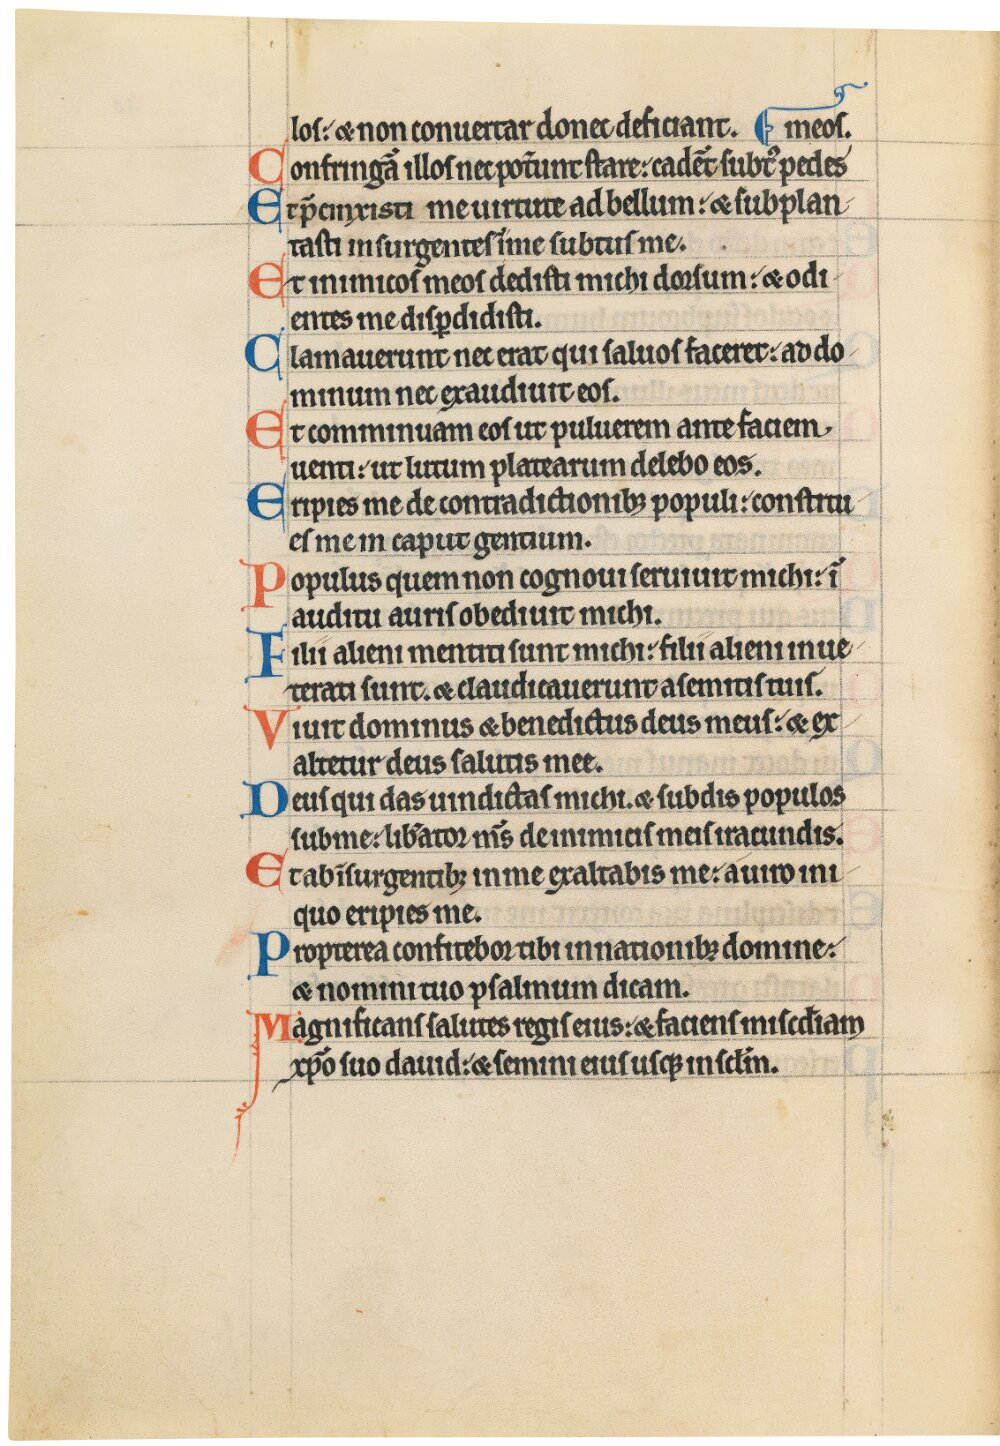 loſ: ⁊ non conuertar donec deficiant. meoſ.
Confringā illoſ nec pot̄unt ſtare: cadēt ſubt᷒ pedes
Et p̄cinxisti me uirtute ad bellum: ⁊ ſubplan
taſti inſurgenteſ īme ſubtuſ me.
Et inimicoſ meoſ dediſti michi dorſum: ⁊ odi
entes me diſꝑdidiſti.
Clamauerunt nec erat qui ſaluoſ faceret: ad do
minum nec exaudiuit eoſ.
Et comminuam eoſ ut puluerem ante faciem
uenti: ut lutum platearum delebo eos.
Eripies me de contradictionibꝫ populi: conſtitu
eſ me in caput gentium.
Populus quem non cognoui ſeruiuit michi: ī
auditu auriſ obediuit michi.
Filii alieni mentiti ſunt michi: filii alieni inue
terati ſunt. ⁊ claudicauerunt a ſemitiſ tuiſ.
Viuit dominus ⁊ benedictus deus meuſ: ⁊ ex
altetur deus ſalutis mee.
Deuſ qui das uindictaſ michi. ⁊ ſubdis populos
ſub me: lib̄ator m̄s de inimiciſ meiſ iracundis.
Et ab īſurgentibꝫ in me exaltabis me: a uiro ini
quo eripies me.
Propterea confitebor tibi in nationibꝫ domine:
⁊ nomini tuo pſalmum dicam.
Magnificanſ ſalutes regiſ eius: ⁊ facienſ miſcd̄iam
xp̄o ſuo dauid: ⁊ ſemini eiuſ uſqꝫ in ſcl̄m.